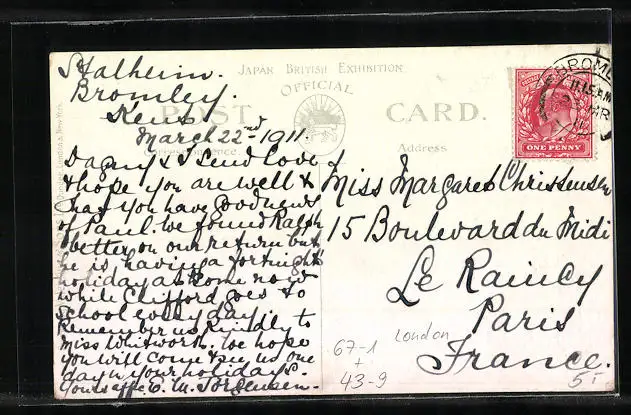 Stalheim.
Bromley.
Kent
March 22nd 1911.
JAPAN BRITISH EXHIBITION
OFFICIAL
POST CARD.
Correspondence
Address
BROMLEY
11.15 AM
MR
ONE PENNY
Dagny & I send love
& hope you are well &
that you have good news
of Paul. We found Ralph
better on our return but
he is having a fortnight's
holiday at home now
while Clifford goes to
school every day.
Remember us kindly to
Miss Whitworth. We hope
you will come & see us one
day in your holidays.
Yours affec. E. M. Jorgensen.
Miss Margaret Christensen
15 Boulevard du Midi
Le Raincy
Paris
France.
London
67-1
+
43-9
5,-